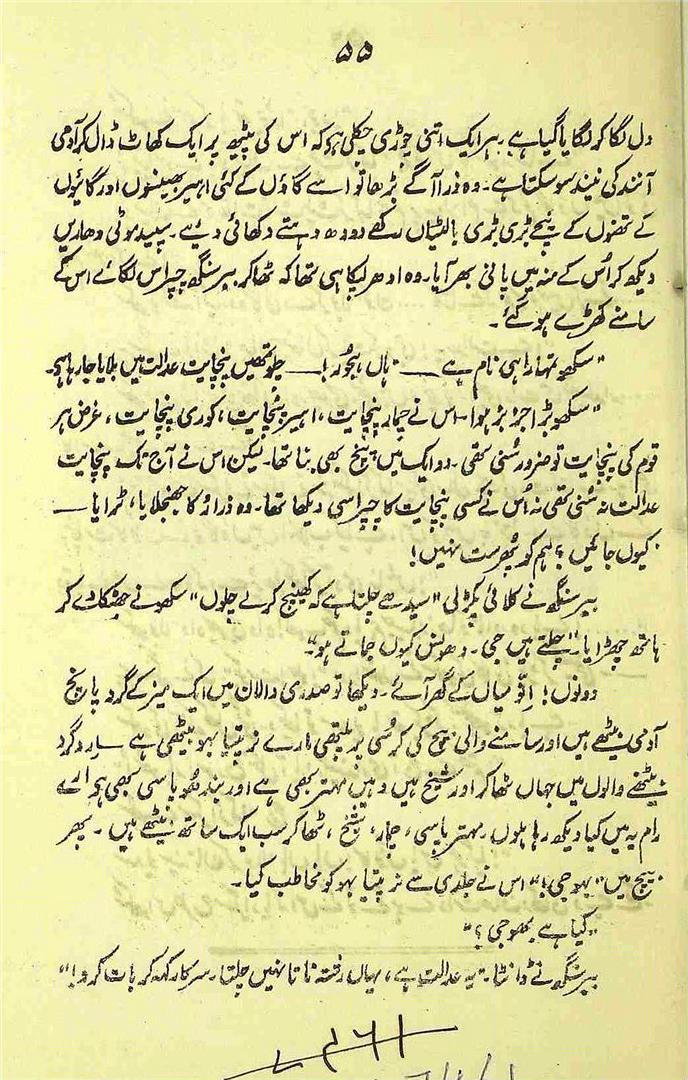 ۵۵
دل لگا کر لگایا گیا ہے۔ ہر ایک اتنی چوڑی چکلی ہو کہ اس کی پیٹھ پر ایک کھاٹ ڈال کر آدمی
آنند کی نیند سو سکتا ہے۔ وہ ذرا آگے بڑھا تو اسے گاؤں کے کئی اہیر بھینسوں اور گایوں
کے تھنوں کے نیچے بڑی بڑی بالٹیاں رکھے دودھ دہتے دکھائی دیے۔ سپید موٹی دھاریں
دیکھ کر اُس کے منہ میں پانی بھر آیا۔ وہ ادھر لپکا ہی تھا کہ ٹھاکر بیر سنگھ چپراس لگائے اس کے
سامنے کھڑے ہو گئے۔
"سکھو تمہارا ہی نام ہے — ہاں ہجُور! — چلو تمھیں پنچایت عدالت میں بلایا جا رہا ہے۔
"سکھو بڑا جز بز ہوا۔ اس نے چمار پنچایت، اہیر پنچایت، کوری پنچایت، غرض ہر
قوم کی پنچایت تو ضرور سُنی تھی۔ دو ایک میں پنچ بھی بنا تھا۔ لیکن اس نے آج تک پنچایت
عدالت نہ سُنی تھی نہ اُس نے کسی پنچایت کا چپراسی دیکھا تھا۔ وہ ذرا رُکا جھنجلایا، ٹرایا —
کیوں جائیں؟ ہم کو پھرست نہیں!
بیر سنگھ نے کلائی پکڑلی "سیدھے چلتا ہے کہ کھینچ کر لے چلوں" سکھو نے جھٹک دے کر
ہاتھ چھڑایا۔ "چلتے ہیں جی۔ دھونس کیوں جماتے ہو"۔
دونوں! اِدّو میاں کے گھر آئے۔ دیکھا تو صدری دالان میں ایک میز کے گرد پانچ
آدمی بیٹھے ہیں اور سامنے والی بیچ کی کرسُی پر پلتھی مارے نرپتیا بہو بیٹھی ہے۔ ارد گرد
بیٹھنے والوں میں جہاں ٹھاکر اور شیخ ہیں وہیں مہتر بھی ہے اور بندھو پاسی بھی ہے ارے
رام یہ میں کیا دیکھ رہا ہوں۔ مہتر پاسی، چمار، شیخ، ٹھاکر سب ایک ساتھ بیٹھے ہیں۔ پھر
بیچ میں "بہو جی!" اس نے جلدی سے نرپتیا بہو کو مخاطب کیا۔
"کیا ہے بھوجی؟"
بیر سنگھ نے ڈانٹا۔ "یہ عدالت ہے، یہاں رشتہ ناتا نہیں چلتا۔ سرکار کہہ کر بات کرو!"